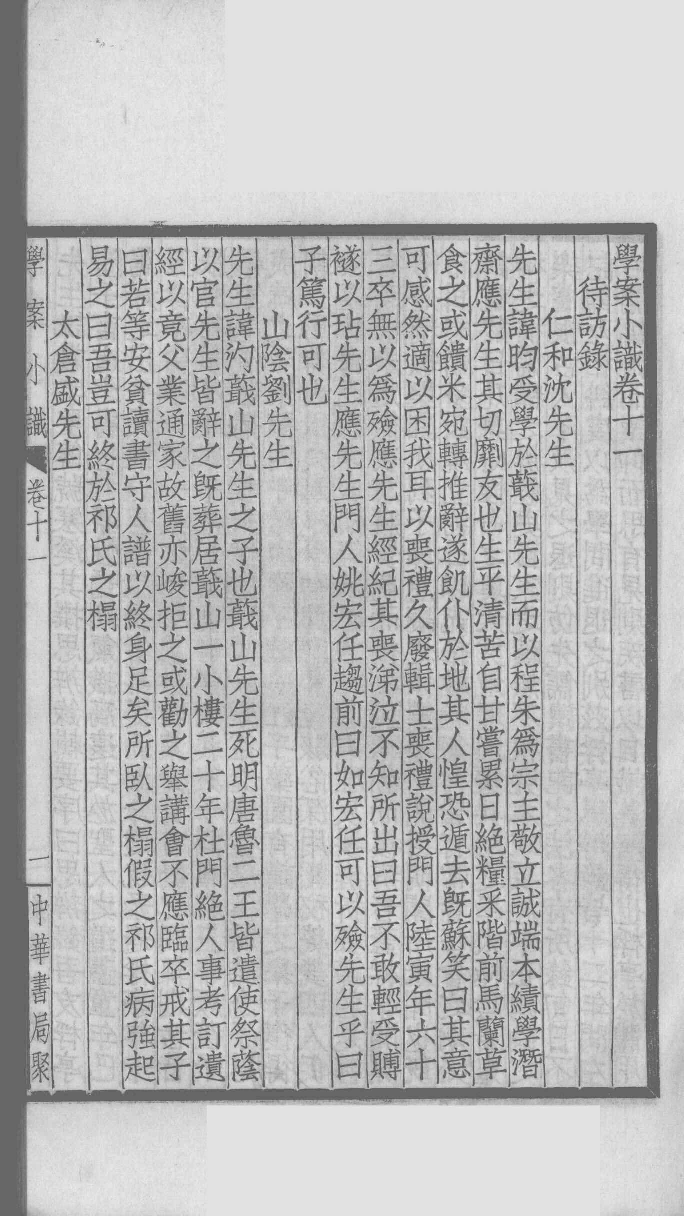 學案小識卷十一
待訪錄
仁和沈先生
先生諱昀受學於蕺山先生而以程朱為宗主敬立誠端本績學潛
齋應先生其切劘友也生平清苦自甘嘗累日絕糧采階前馬蘭草
食之或饋米宛轉推辭遂飢仆於地其人惶恐遁去旣蘇笑曰其意
可感然適以困我耳以喪禮久廢輯士喪禮說授門人陸寅年六十
三卒無以為殮應先生經紀其喪涕泣不知所出曰吾不敢輕受賻
襚以玷先生應先生門人姚宏任趨前曰如宏任可以殮先生乎曰
子篤行可也
山陰劉先生
先生諱汋蕺山先生之子也蕺山先生死明唐魯二王皆遣使祭蔭
以官先生皆辭之旣葬居蕺山一小樓二十年杜門絕人事考訂遺
經以竟父業通家故舊亦峻拒之或勸之舉講會不應臨卒戒其子
曰若等安貧讀書守人譜以終身足矣所臥之榻假之祁氏病強起
易之曰吾豈可終於祁氏之榻
太倉盛先生
學案小識 卷十一 一 中華書局聚